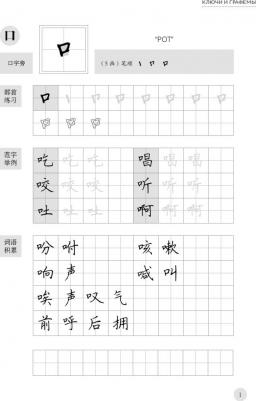 КЛЮЧИ И ГРАФЕМЫ
口
口
口字旁
"РОТ"
(3 画) 笔顺
部首练习
口
范字举例
吃 吃 吃 唱 唱 唱
咬 咬 咬 听 听 听
吐 吐 吐 啊 啊 啊
词语积累
吩咐 咳嗽
响声 喊叫
唉声叹气
前呼后拥
1